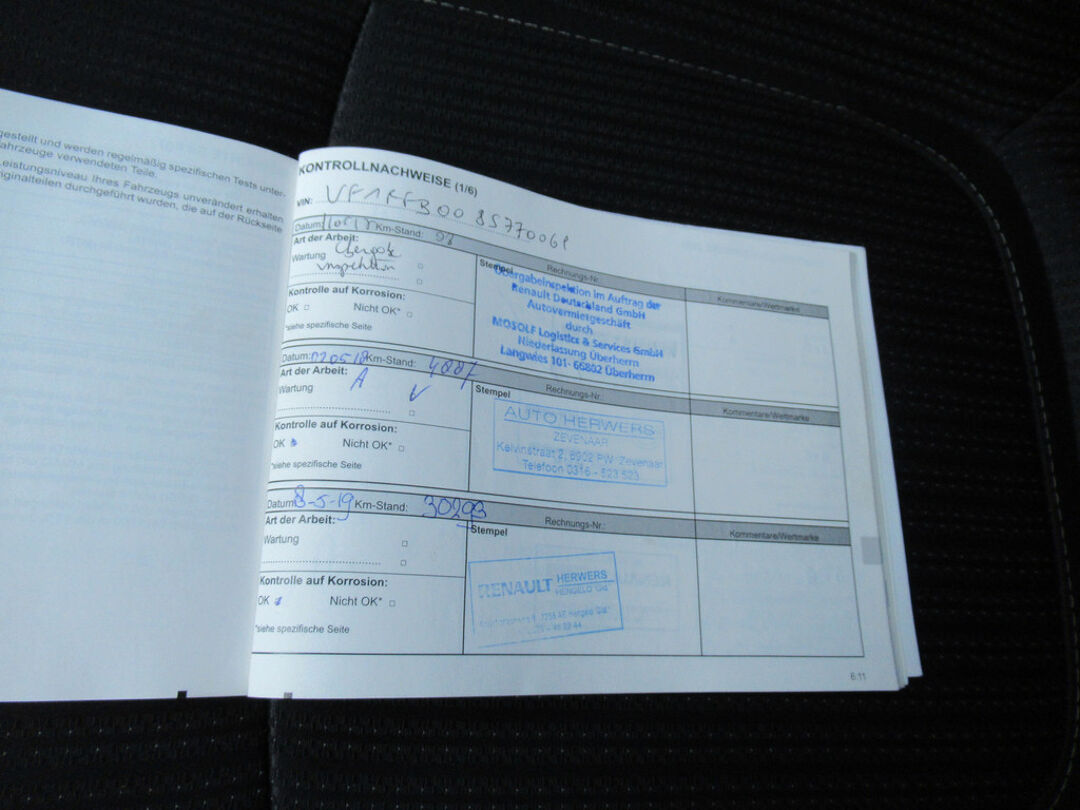 gestellt und werden regelmäßig spezifischen Tests unter-
Fahrzeuge verwendeten Teile.
Leistungsniveau Ihres Fahrzeugs unverändert erhalten
riginalteilen durchgeführt wurden, die auf der Rückseite
KONTROLLNACHWEISE (1/6)
VIN:
Datum: Km-Stand: 98 Rechnungs-Nr. Kommentare/Wertmarke
Art der Arbeit:
Wartung
Stempel
Übergabeinspektion im Auftrag der
Renault Deutschland GmbH
Autovermietgeschäft
durch
MOSOLF Logistics & Services GmbH
Niederlassung Überherrn
Langwies 101- 66802 Überherrn
Kontrolle auf Korrosion:
OK Nicht OK*
*siehe spezifische Seite
Datum: Km-Stand: Rechnungs-Nr.: Kommentare/Wertmarke
Art der Arbeit: A
Wartung
Stempel
AUTO HERWERS
ZEVENAAR
Kelvinstraat 2, 6902 PW Zevenaar
Telefoon 0316 - 523 523
Kontrolle auf Korrosion:
OK Nicht OK*
*siehe spezifische Seite
Datum: 8-5-19 Km-Stand: 30293 Rechnungs-Nr.: Kommentare/Wertmarke
Art der Arbeit:
Wartung
Stempel
RENAULT HERWERS
HENGELO
Kontrolle auf Korrosion:
OK Nicht OK*
*siehe spezifische Seite
6.11